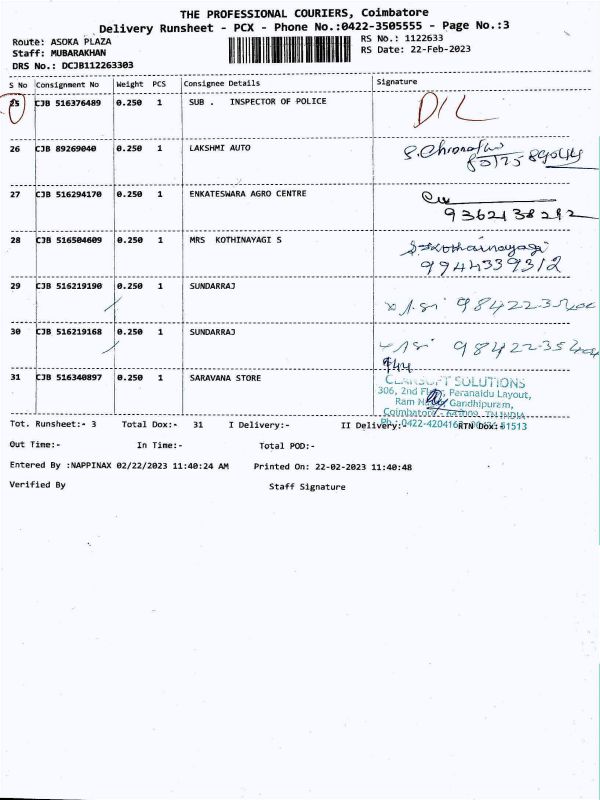 THE PROFESSIONAL COURIERS, Coimbatore
Delivery Runsheet - PCX - Phone No.:0422-3505555 - Page No.:3
Route: ASOKA PLAZA
Staff: MUBARAKHAN
DRS No.: DCJB112263303
RS No.: 1122633
RS Date: 22-Feb-2023
S No Consignment No Weight PCS Consignee Details Signature
25 CJB 516376489 0.250 1 SUB . INSPECTOR OF POLICE D/L
26 CJB 89269040 0.250 1 LAKSHMI AUTO
27 CJB 516294170 0.250 1 ENKATESWARA AGRO CENTRE
9362138282
28 CJB 516504609 0.250 1 MRS KOTHINAYAGI S
9944339312
29 CJB 516219190 0.250 1 SUNDARRAJ
30 CJB 516219168 0.250 1 SUNDARRAJ
31 CJB 516340897 0.250 1 SARAVANA STORE
SOLUTIONS
306, 2nd Floor, Peranaidu Layout,
Ram Gandhipuram,
Coimbatore
Tot. Runsheet:- 3 Total Dox:- 31 I Delivery:- II Delivery:- RTN Dox:-
Out Time:- In Time:- Total POD:-
Entered By :NAPPINAX 02/22/2023 11:40:24 AM Printed On: 22-02-2023 11:40:48
Verified By Staff Signature